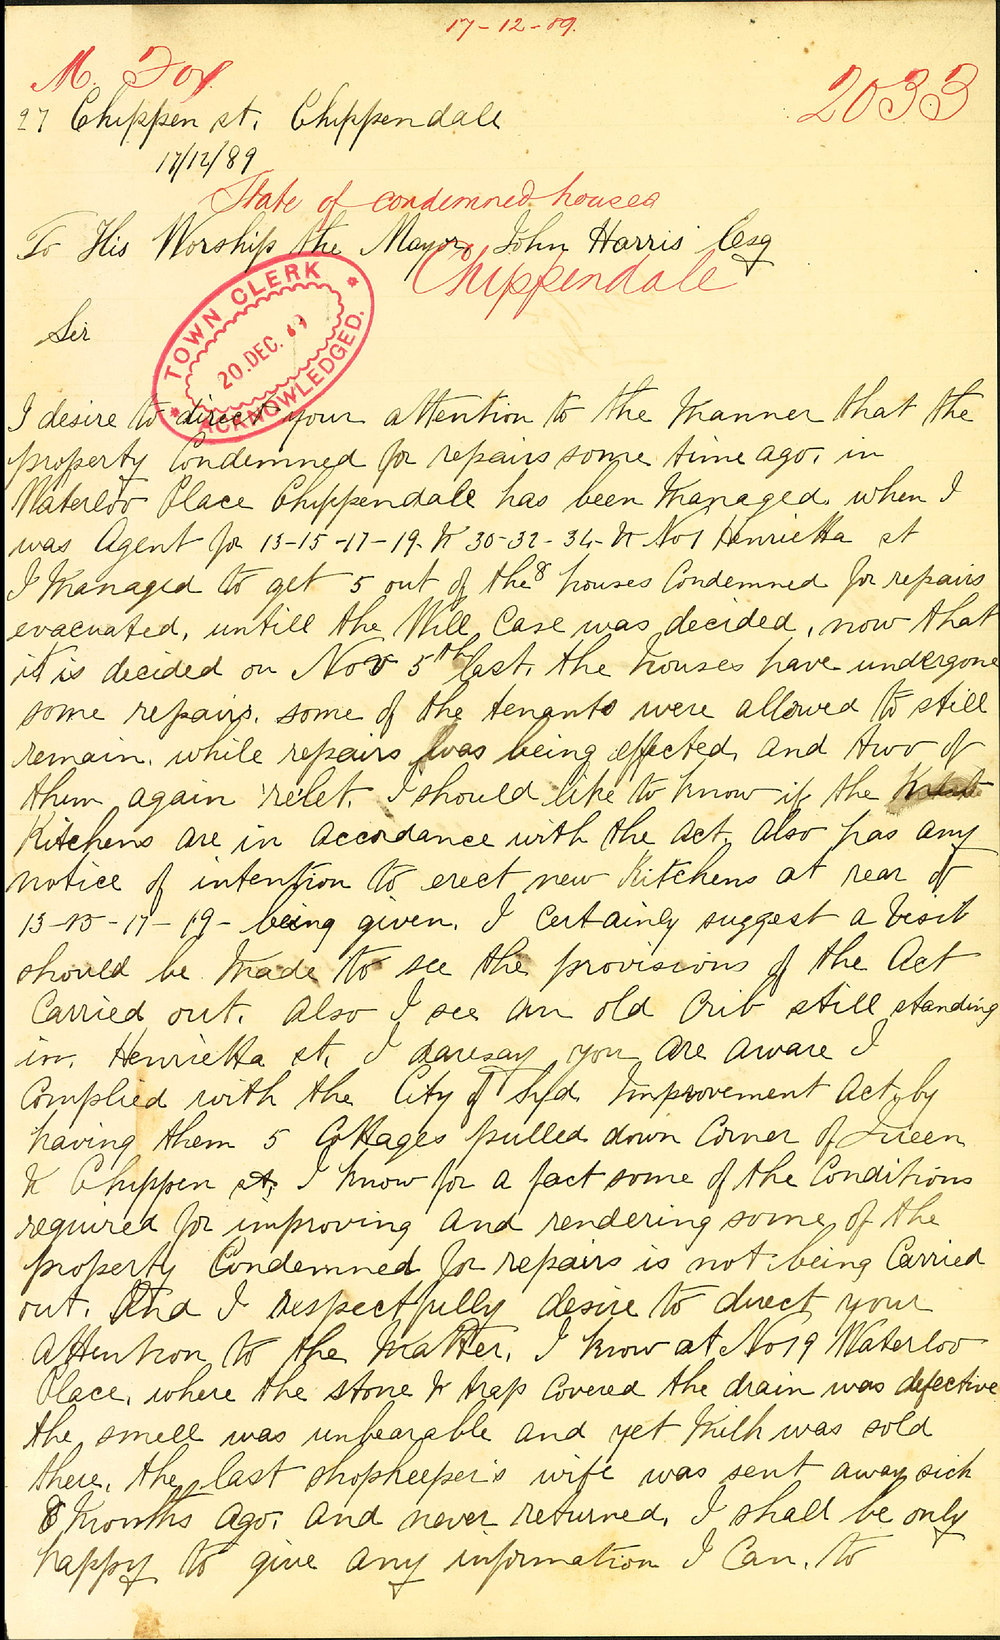 17-12-89.
M. Fox
2033
27 Chippen st. Chippendale
17/12/89
State of condemned houses
To His Worship the Mayor, John Harris Esq
Chippendale
TOWN CLERK
20.DEC.89
ACKNOWLEDGED.
Sir
I desire to direct your attention to the manner that the
property Condemned for repairs some time ago. in
Waterloo Place Chippendale has been managed. when I
was Agent for 13-15-17-19. & 30-32-34- & No 1 Henrietta st
I managed to get 5 out of the 8 houses Condemned for repairs
evacuated, untill the Will Case was decided, now that
it is decided on Nov 5th last. the houses have undergone
some repairs. some of the tenants were allowed to still
remain. while repairs was being effected, and two of
them again relet. I should like to know if the
Kitchens are in accordance with the act. also has any
notice of intention to erect new Kitchens at rear of
13-15-17-19- being given. I certainly suggest a visit
should be made to see the provisions of the Act
Carried out. also I see an old Crib still standing
in. Henrietta st. I daresay you are aware I
Complied with the City of Syd. Improvement Act by
having them 5 Cottages pulled down Corner of Queen
& Chippen st. I know for a fact some of the Conditions
required for improving and rendering some of the
property Condemned for repairs is not being Carried
out. And I respectfully desire to direct your
attention to the matter. I know at No 19 Waterloo
Place, where the stone & trap covered the drain was defective
the smell was unbearable and yet milk was sold
there. the last shopkeeper's wife was sent away sick
8 months ago. and never returned. I shall be only
happy to give any information I Can. to